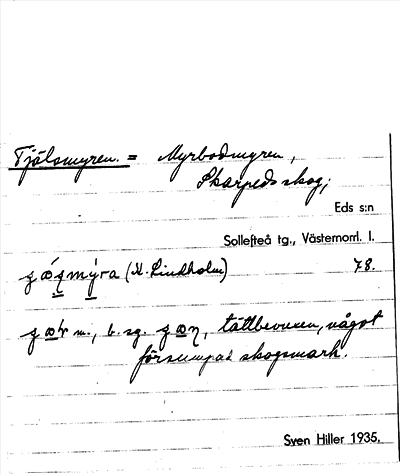 Tjälsmyren. = Myrbodmyren,
Skarpeds skog;
Eds s:n
Sollefteå tg., Västernorrl. l.
(N. Lindholm) 78.
m., b. sg. tättbevuxen, något
försumpad skogsmark.
Sven Hiller 1935.